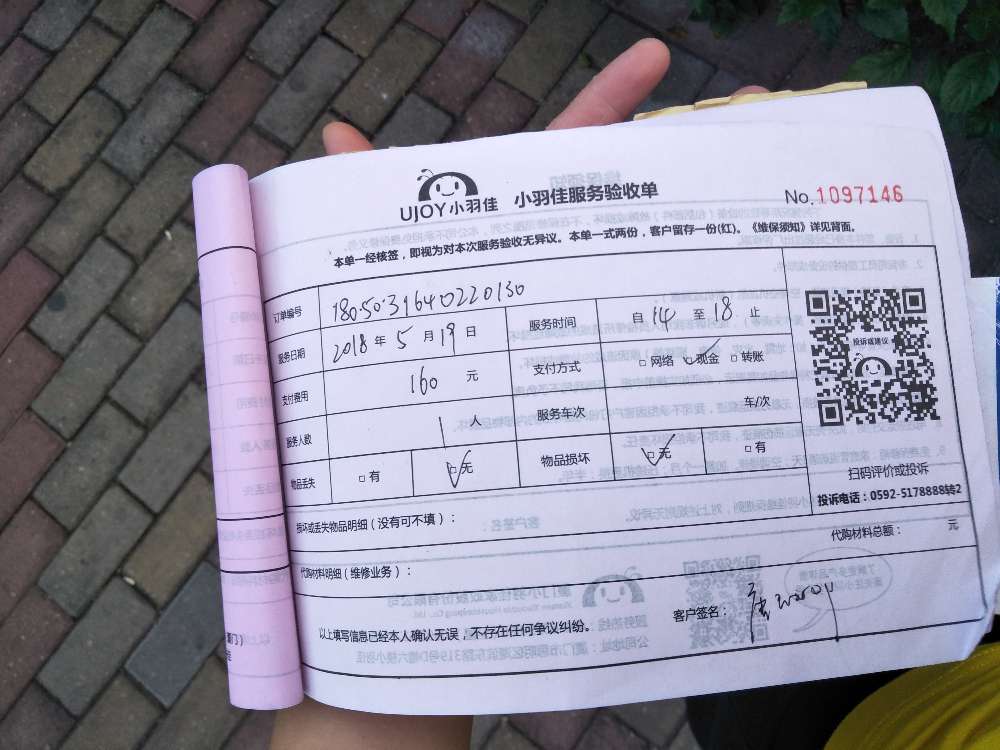 UJOY小羽佳 小羽佳服务验收单
No.1097146
本单一经核签,即视为对本次服务验收无异议。本单一式两份,客户留存一份(红)。《维保须知》详见背面。
订单编号 1805039640220130
服务日期 2018年5月19日 服务时间 自14至18止
支付费用 160元 支付方式 □网络 □现金 □转账
服务人数 1人 服务车次 车/次
物品丢失 □有 □无 物品损坏 □无 □有
投诉或建议
扫码评价或投诉
投诉电话:0592-5178888转2
损坏或丢失物品明细(没有可不填):
代购材料明细(维修业务):
代购材料总额: 元
以上填写信息已经本人确认无误,不存在任何争议纠纷。
客户签名: